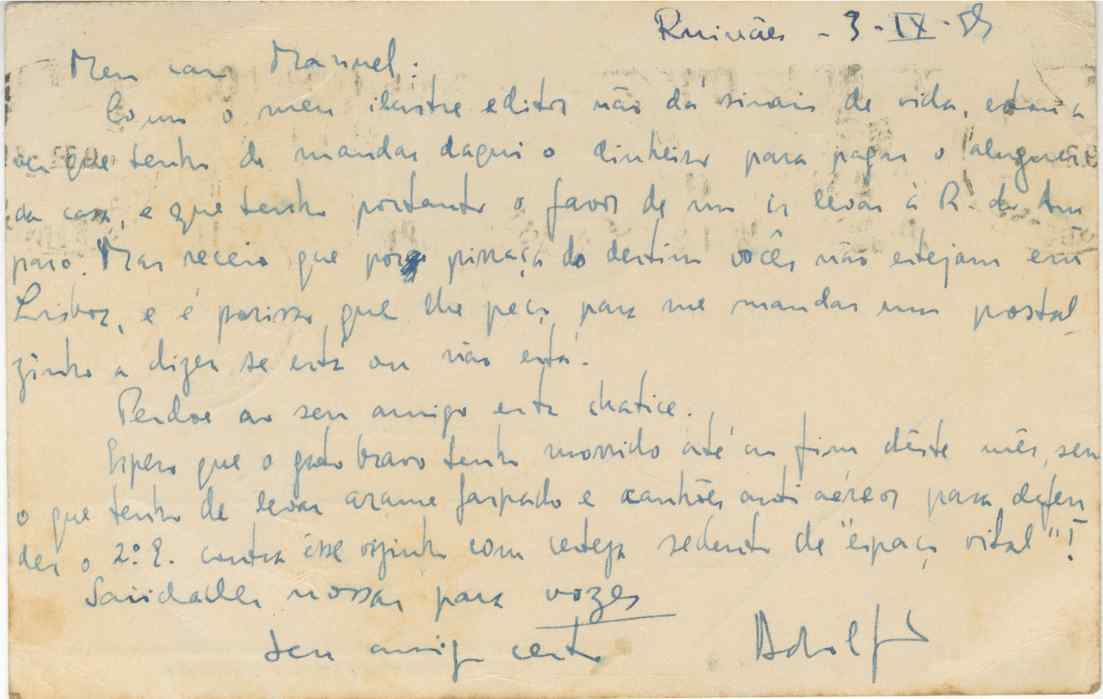 Ruivães - 3 - IX - 5
Meu caro Manuel:
Como o meu ilustre editor não dá sinais de vida, estou a
ver que tenho de mandar daqui o dinheiro para pagar o aluguer
da casa, e que tenho portanto o favor de um ir levar à R. do Am
paro. Mas receio que por pirraça do destino vocês não estejam em
Lisboa, e é porisso que lhe peço para me mandar um postal
zinho a dizer se está ou não está.
Perdoe ao seu amigo esta chatice.
Espero que o gato bravo tenha morrido até ao fim dêste mês, sem
o que tenho de levar arame farpado e canhões anti aéreos para defen
der o 2º. E. contra êsse vizinho com certeza sedento de "espaço vital"!
Saüdades nossas para vozes
Seu amigo certo Adolfo